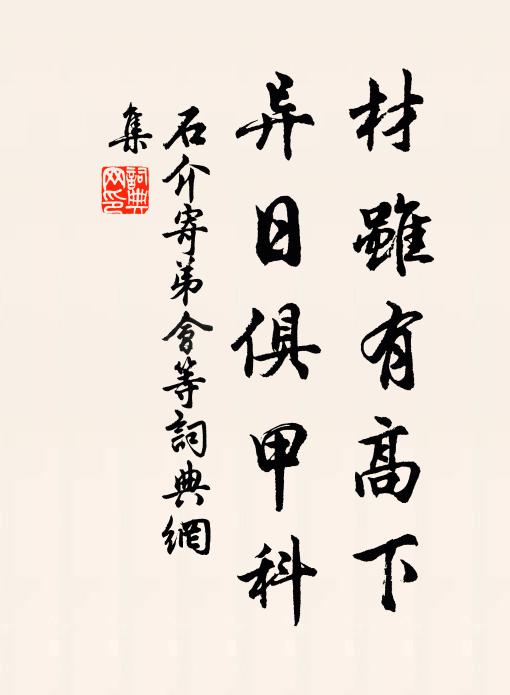 材雖有高下
异日俱甲科
石介寄弟會等詞典網
集
詞典
网印